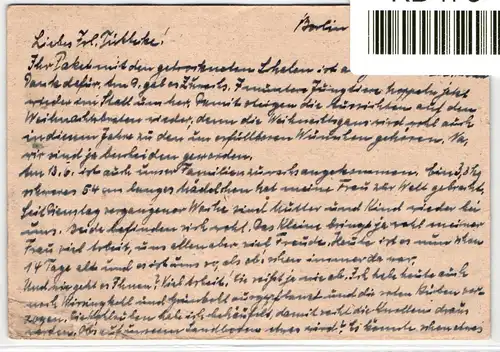 Berlin
Liebes Frl. Püttcke!
Ihr Paket mit den getrockneten Schalen ist
Dank dafür. Am 9. gab es Zuwachs. 7 muntere Jungtiere hoppeln jetzt
wieder im Stall umher. Damit steigen die Aussichten auf den
Weihnachtsbraten wieder, denn die Weihnachtsgans wird wohl auch
in diesem Jahre zu den unerfüllbaren Wünschen gehören. Na,
wir sind ja bescheiden geworden.
Am 13.6. ist auch unser Familienzuwachs angekommen. Ein 3, kg
schweres 54 cm langes Mädelchen hat meine Frau zur Welt gebracht.
Seit Dienstag vergangener Woche sind Mutter und Kind wieder bei
uns. Beide befinden sich wohl. Das Kleine bringt ja wohl meiner
Frau viel Arbeit, uns allen aber viel Freude. Heute ist es nun schon
14 Tage alt und es ist uns so, als ob es schon immer da war.
Und wie geht es Ihnen? Viel Arbeit! Sie reißt ja nie ab. Ich habe heute auch
noch Wirsingkohl und Grünkohl ausgepflanzt und die roten Rüben ver-
zogen. Die habe ich behäufelt, damit recht dicke Knollen draus
werden. Ob auf unserem Landboden etwas wird? Es konnte schon etwas